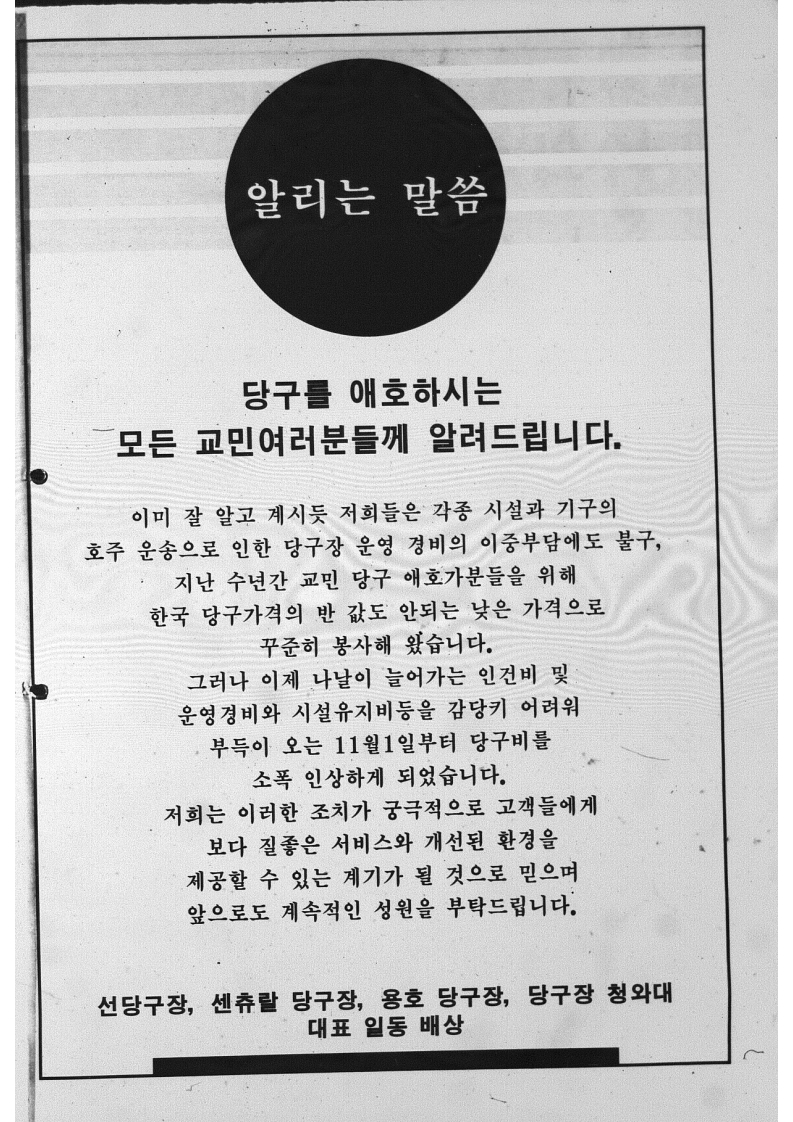 알리는 말씀
당구를 애호하시는
모든 교민여러분들께 알려드립니다.
이미 잘 알고 계시듯 저희들은 각종 시설과 기구의
호주 운송으로 인한 당구장 운영 경비의 이중부담에도 불구,
지난 수년간 교민 당구 애호가분들을 위해
한국 당구가격의 반 값도 안되는 낮은 가격으로
꾸준히 봉사해 왔습니다.
그러나 이제 나날이 늘어가는 인건비 및
운영경비와 시설유지비등을 감당키 어려워
부득이 오는 11월1일부터 당구비를
소폭 인상하게 되었습니다.
저희는 이러한 조치가 궁극적으로 고객들에게
보다 질좋은 서비스와 개선된 환경을
제공할 수 있는 계기가 될 것으로 믿으며
앞으로도 계속적인 성원을 부탁드립니다.
선당구장, 센츄랄 당구장, 용호 당구장, 당구장 청와대
대표 일동 배상